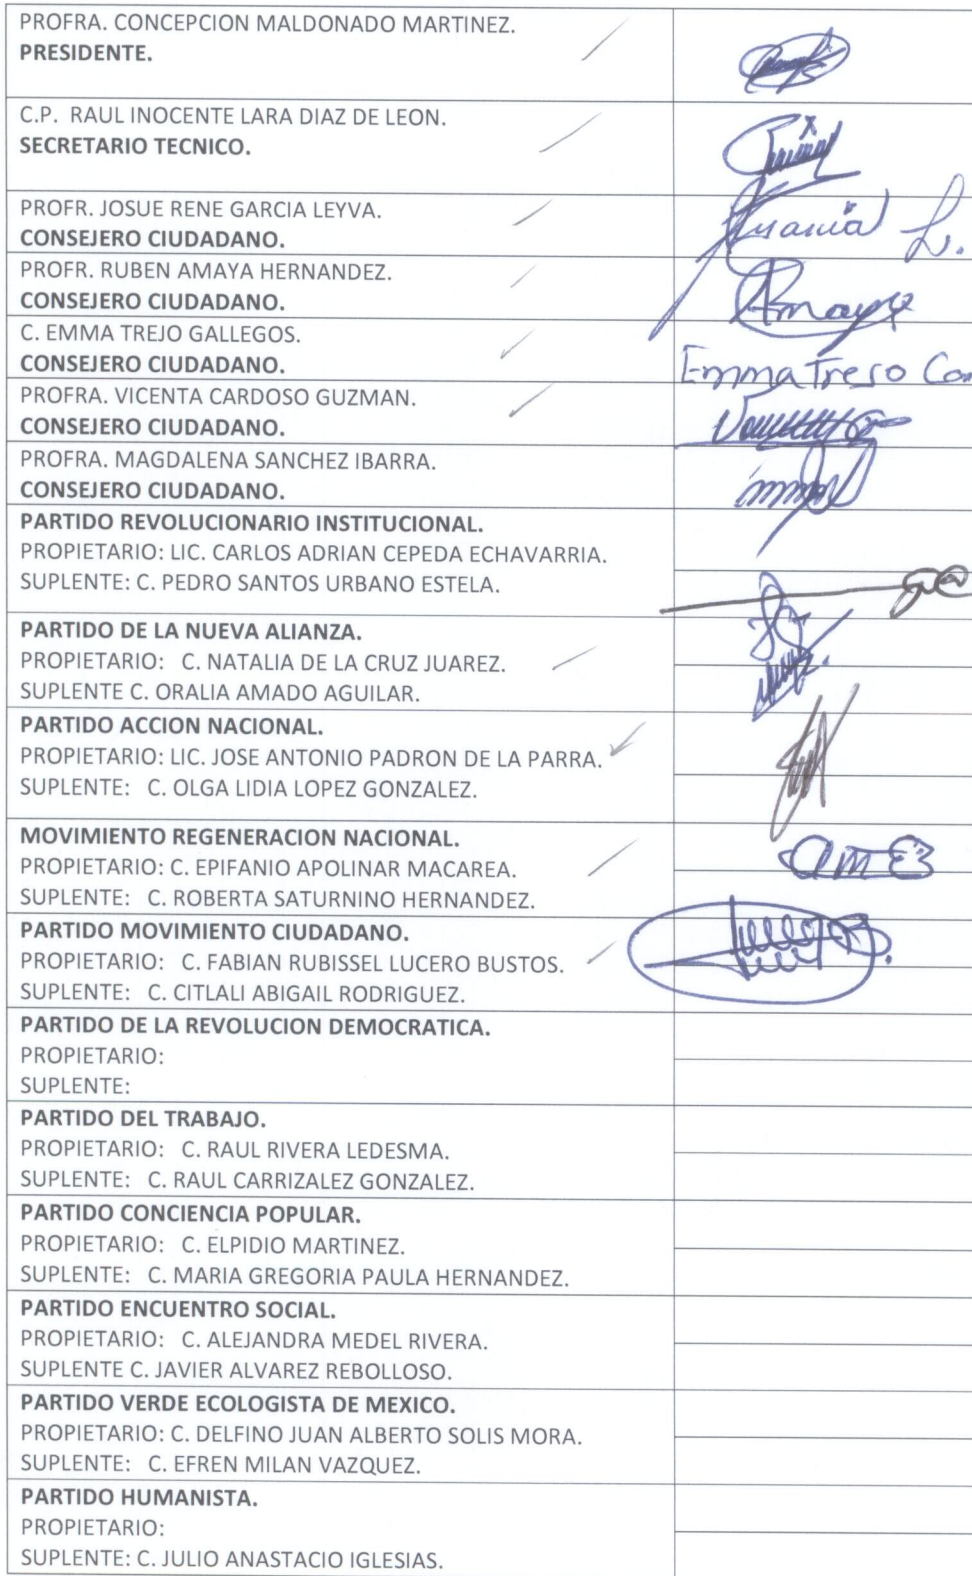 PROFRA. CONCEPCION MALDONADO MARTINEZ.
PRESIDENTE.
C.P. RAUL INOCENTE LARA DIAZ DE LEON.
SECRETARIO TECNICO.
PROFR. JOSUE RENE GARCIA LEYVA.
CONSEJERO CIUDADANO.
PROFR. RUBEN AMAYA HERNANDEZ.
CONSEJERO CIUDADANO.
Amaya
C. EMMA TREJO GALLEGOS.
CONSEJERO CIUDADANO.
Emma Trejo
PROFRA. VICENTA CARDOSO GUZMAN.
CONSEJERO CIUDADANO.
PROFRA. MAGDALENA SANCHEZ IBARRA.
CONSEJERO CIUDADANO.
PARTIDO REVOLUCIONARIO INSTITUCIONAL.
PROPIETARIO: LIC. CARLOS ADRIAN CEPEDA ECHAVARRIA.
SUPLENTE: C. PEDRO SANTOS URBANO ESTELA.
PARTIDO DE LA NUEVA ALIANZA.
PROPIETARIO: C. NATALIA DE LA CRUZ JUAREZ.
SUPLENTE C. ORALIA AMADO AGUILAR.
PARTIDO ACCION NACIONAL.
PROPIETARIO: LIC. JOSE ANTONIO PADRON DE LA PARRA.
SUPLENTE: C. OLGA LIDIA LOPEZ GONZALEZ.
MOVIMIENTO REGENERACION NACIONAL.
PROPIETARIO: C. EPIFANIO APOLINAR MACAREA.
SUPLENTE: C. ROBERTA SATURNINO HERNANDEZ.
PARTIDO MOVIMIENTO CIUDADANO.
PROPIETARIO: C. FABIAN RUBISSEL LUCERO BUSTOS.
SUPLENTE: C. CITLALI ABIGAIL RODRIGUEZ.
PARTIDO DE LA REVOLUCION DEMOCRATICA.
PROPIETARIO:
SUPLENTE:
PARTIDO DEL TRABAJO.
PROPIETARIO: C. RAUL RIVERA LEDESMA.
SUPLENTE: C. RAUL CARRIZALEZ GONZALEZ.
PARTIDO CONCIENCIA POPULAR.
PROPIETARIO: C. ELPIDIO MARTINEZ.
SUPLENTE: C. MARIA GREGORIA PAULA HERNANDEZ.
PARTIDO ENCUENTRO SOCIAL.
PROPIETARIO: C. ALEJANDRA MEDEL RIVERA.
SUPLENTE C. JAVIER ALVAREZ REBOLLOSO.
PARTIDO VERDE ECOLOGISTA DE MEXICO.
PROPIETARIO: C. DELFINO JUAN ALBERTO SOLIS MORA.
SUPLENTE: C. EFREN MILAN VAZQUEZ.
PARTIDO HUMANISTA.
PROPIETARIO:
SUPLENTE: C. JULIO ANASTACIO IGLESIAS.